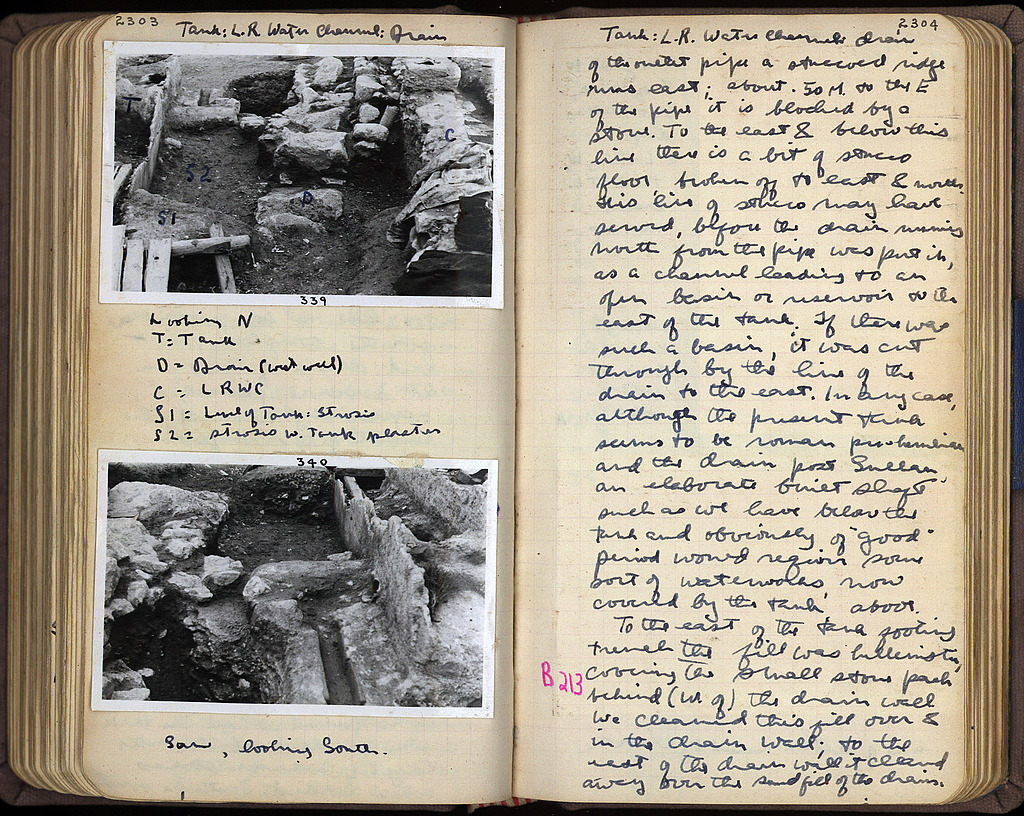 2303
Tank: L.R. Water Channel: Drain
T
C
S2
D
S1
339
Looking N
T = Tank
D = Drain (west wall)
C = LRWC
S1 = Line of Tank: Strosis
S2 = Strosis w. Tank plaster
340
Same, looking South.
2304
Tank: L.R. Water Channel: drain
of the outlet pipe a stuccoed ridge
runs east; about .50 M. to the E
of the pipe it is blocked by a
stone. To the east & below this
line there is a bit of stucco
floor, broken off to east & north.
This line of stucco may have
served, before the drain running
north from the pipe was put in,
as a channel leading to an
open basin or reservoir to the
east of the tank. If there was
such a basin, it was cut
through by the line of the
drain to the east. In any case,
although the present tank
seems to be roman pre-herulian
and the drain post Sullan
an elaborate built shaft
such as we have below the
tank and obviously of "good"
period would require some
sort of waterworks, now
covered by the tank, above.
To the east of the tank footing
trench the fill was hellenistic,
B 213
covering the small stone pack
behind (W. of) the drain wall
We cleaned this fill over &
in the drain wall; to the
east of the drain wall it cleared
away over the sand fill of the drain.